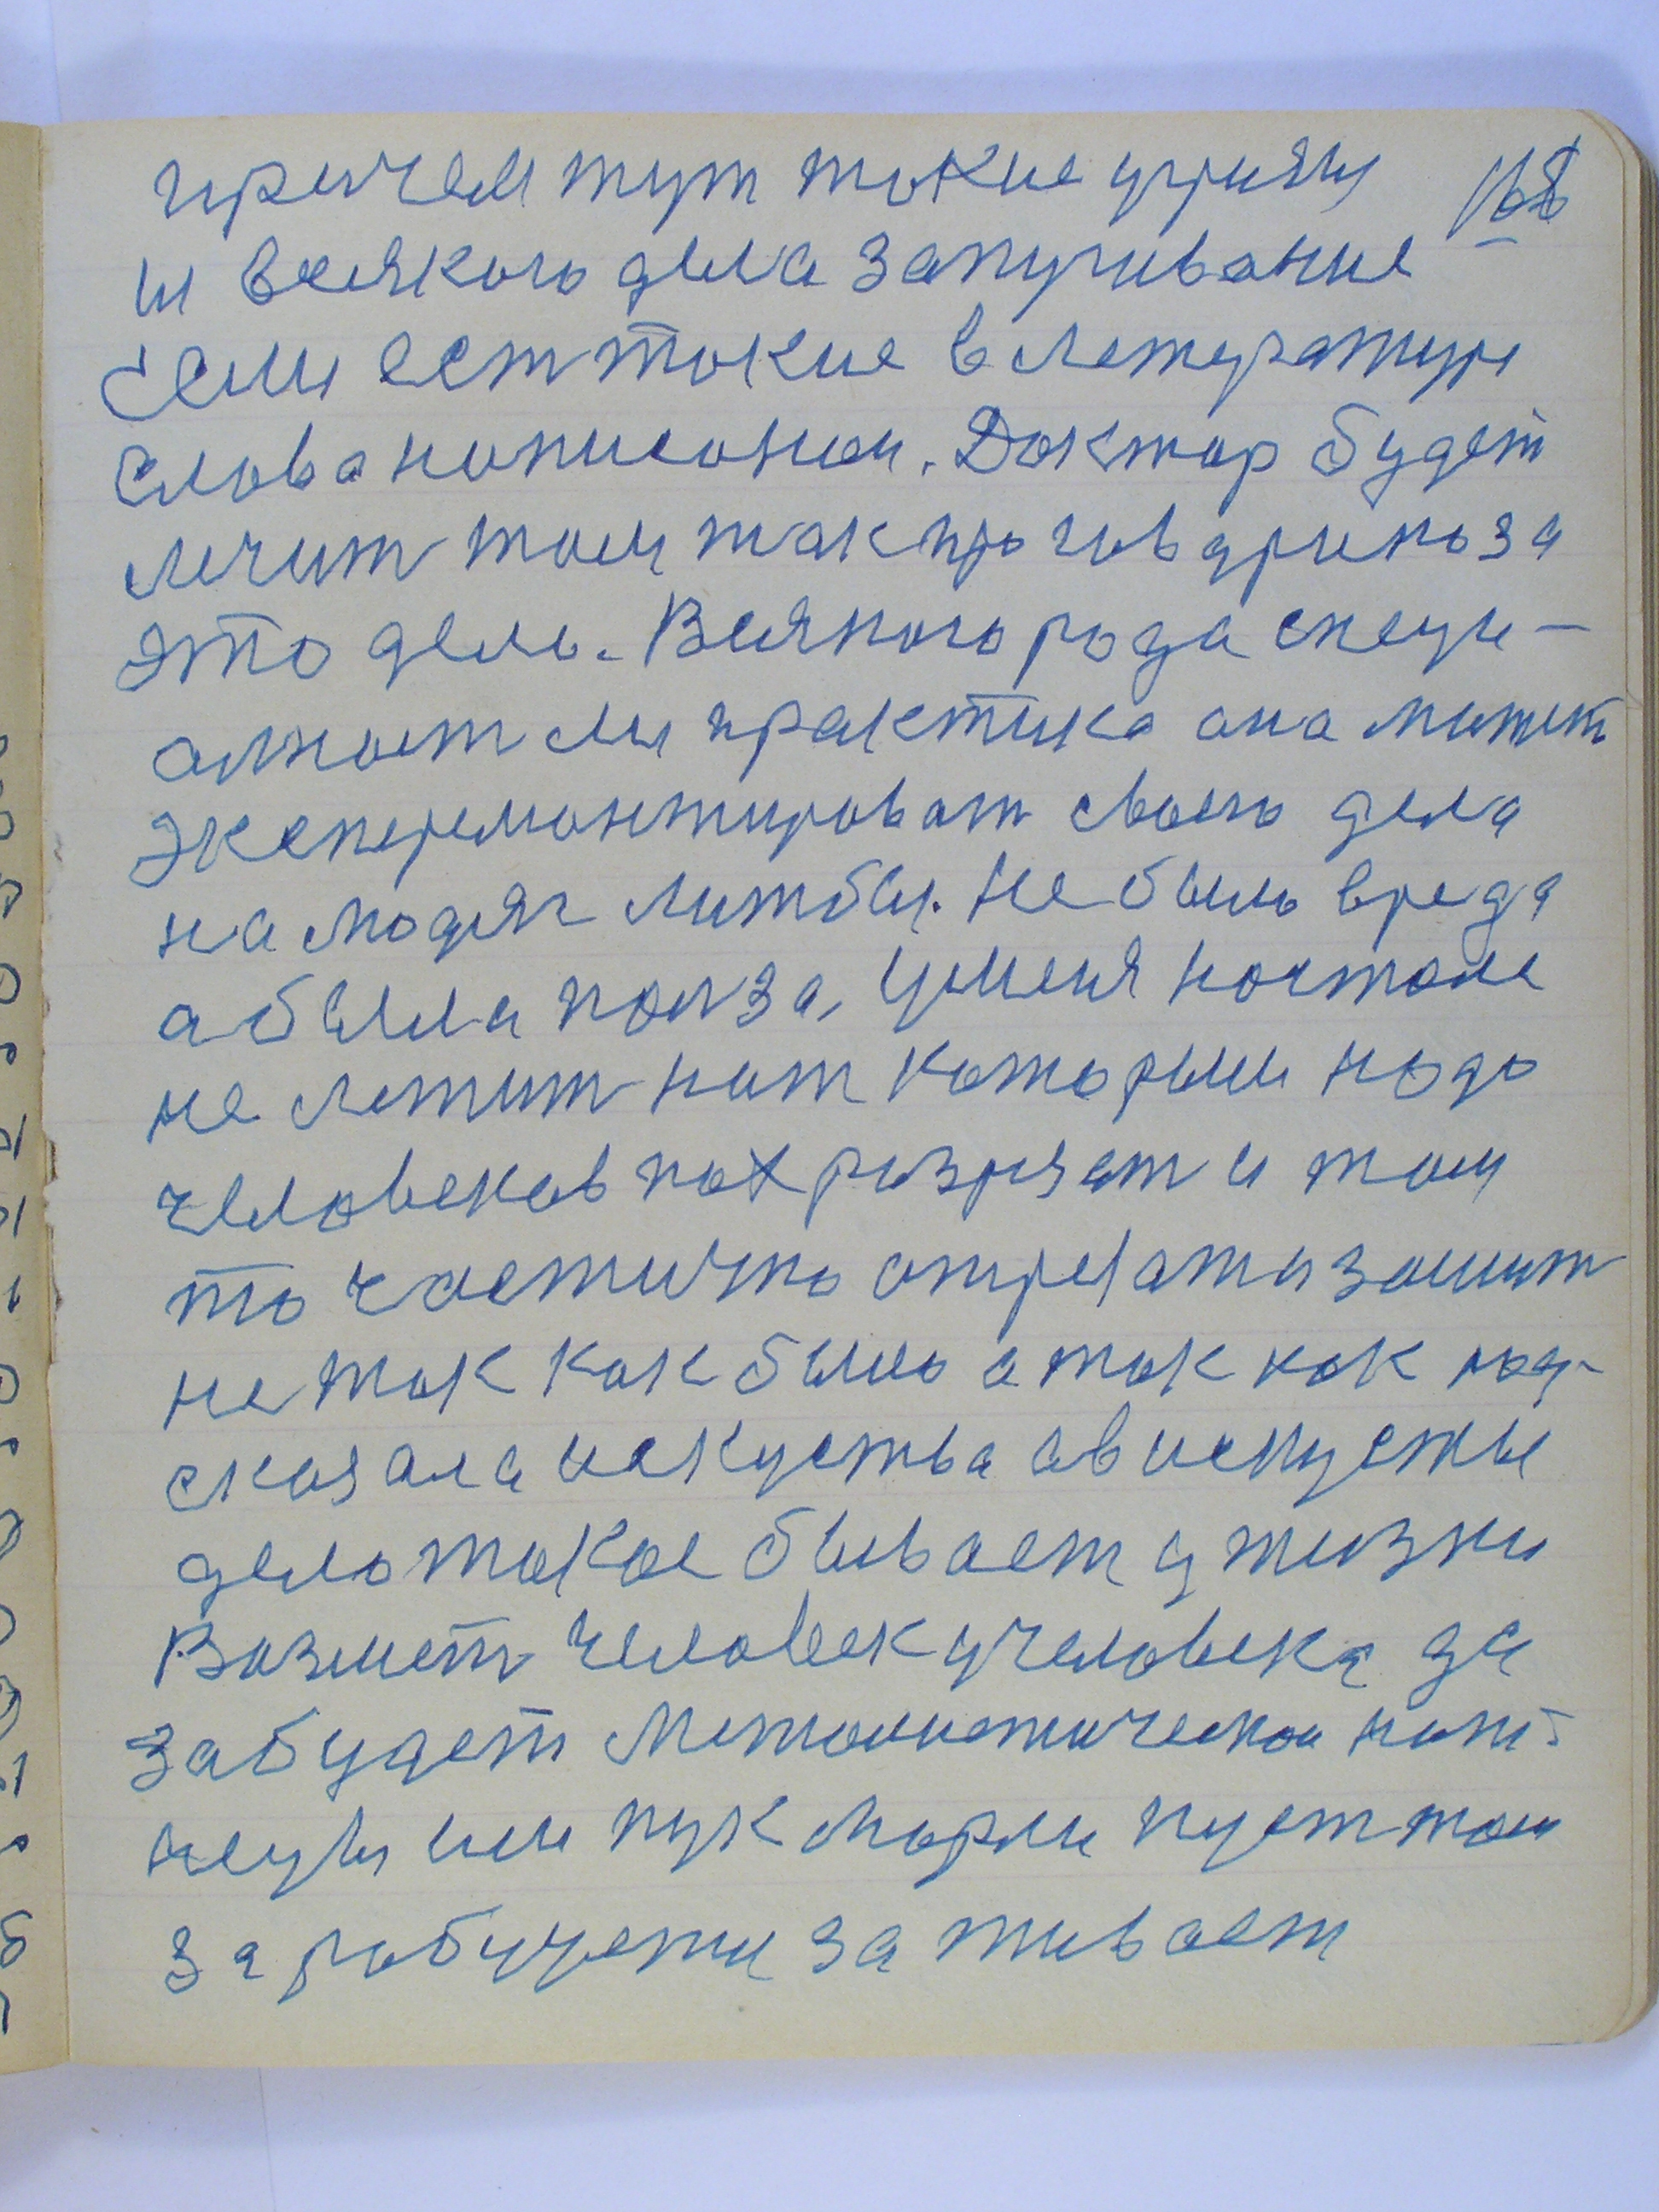 причем тут такие угрозы 168
и всякого дела запугивание
Если ест такие в летературе
слова написаном. Доктар будет
лечит том так про говарено за
это дело. Всякого рода специ-
алност ли практика она может
Эксперемонтироват своего дела
на людях лижбы. не было вреда
а была полза, умения настоле
не лежит нож которым надо
человеков пах разрезат и том
то частично отрезат и зашит
не так как было а так как под-
сказала искуства а в искустве
дело такое бывает у жизни
Возмет человек у человека да
забудет металистической нож-
ницы или пук марли пуст том
за рабущети за живает